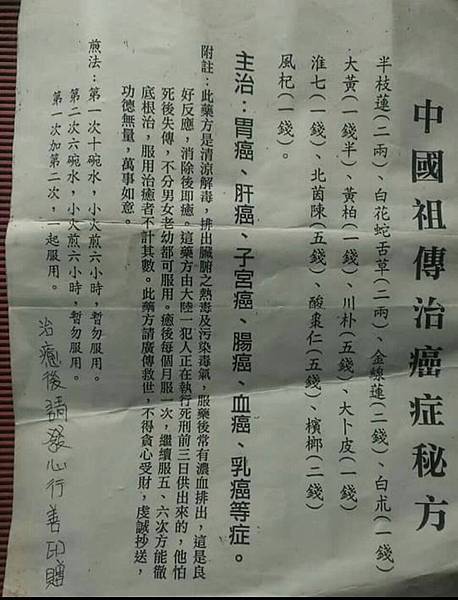 中國祖傳治癌症秘方
半枝蓮(二兩)、白花蛇舌草(二兩)、金線蓮(二錢)、白朮(一錢)
大黃(一錢半)、黃柏(一錢)、川朴(五錢)、大卜皮(一錢)
淮七(一錢)、北茵陳(五錢)、酸棗仁(五錢)、檳榔(二錢)
風杞(一錢)。
主治:胃癌、肝癌、子宮癌、腸癌、血癌、乳癌等症。
附註:此藥方是清涼解毒,排出臟腑之熱毒及污染毒氣,服藥後常有濃血排出,這是良
好反應,消除後即癒。這藥方由大陸一犯人正在執行死刑前三日供出來的,他怕
死後失傳,不分男女老幼都可服用。癒後每個月服一次,繼續服五、六次方能徹
底根治,服用治癒者不計其數。此藥方請廣傳救世,不得貪心受財,虔誠抄送,
功德無量,萬事如意。
煎法:第一次十碗水,小火煎六小時,暫勿服用。
第二次六碗水,小火煎六小時,暫勿服用。
第一次加第二次,一起服用。
治癒後請發心行善印贈